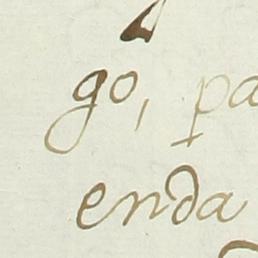 go, pa
enda